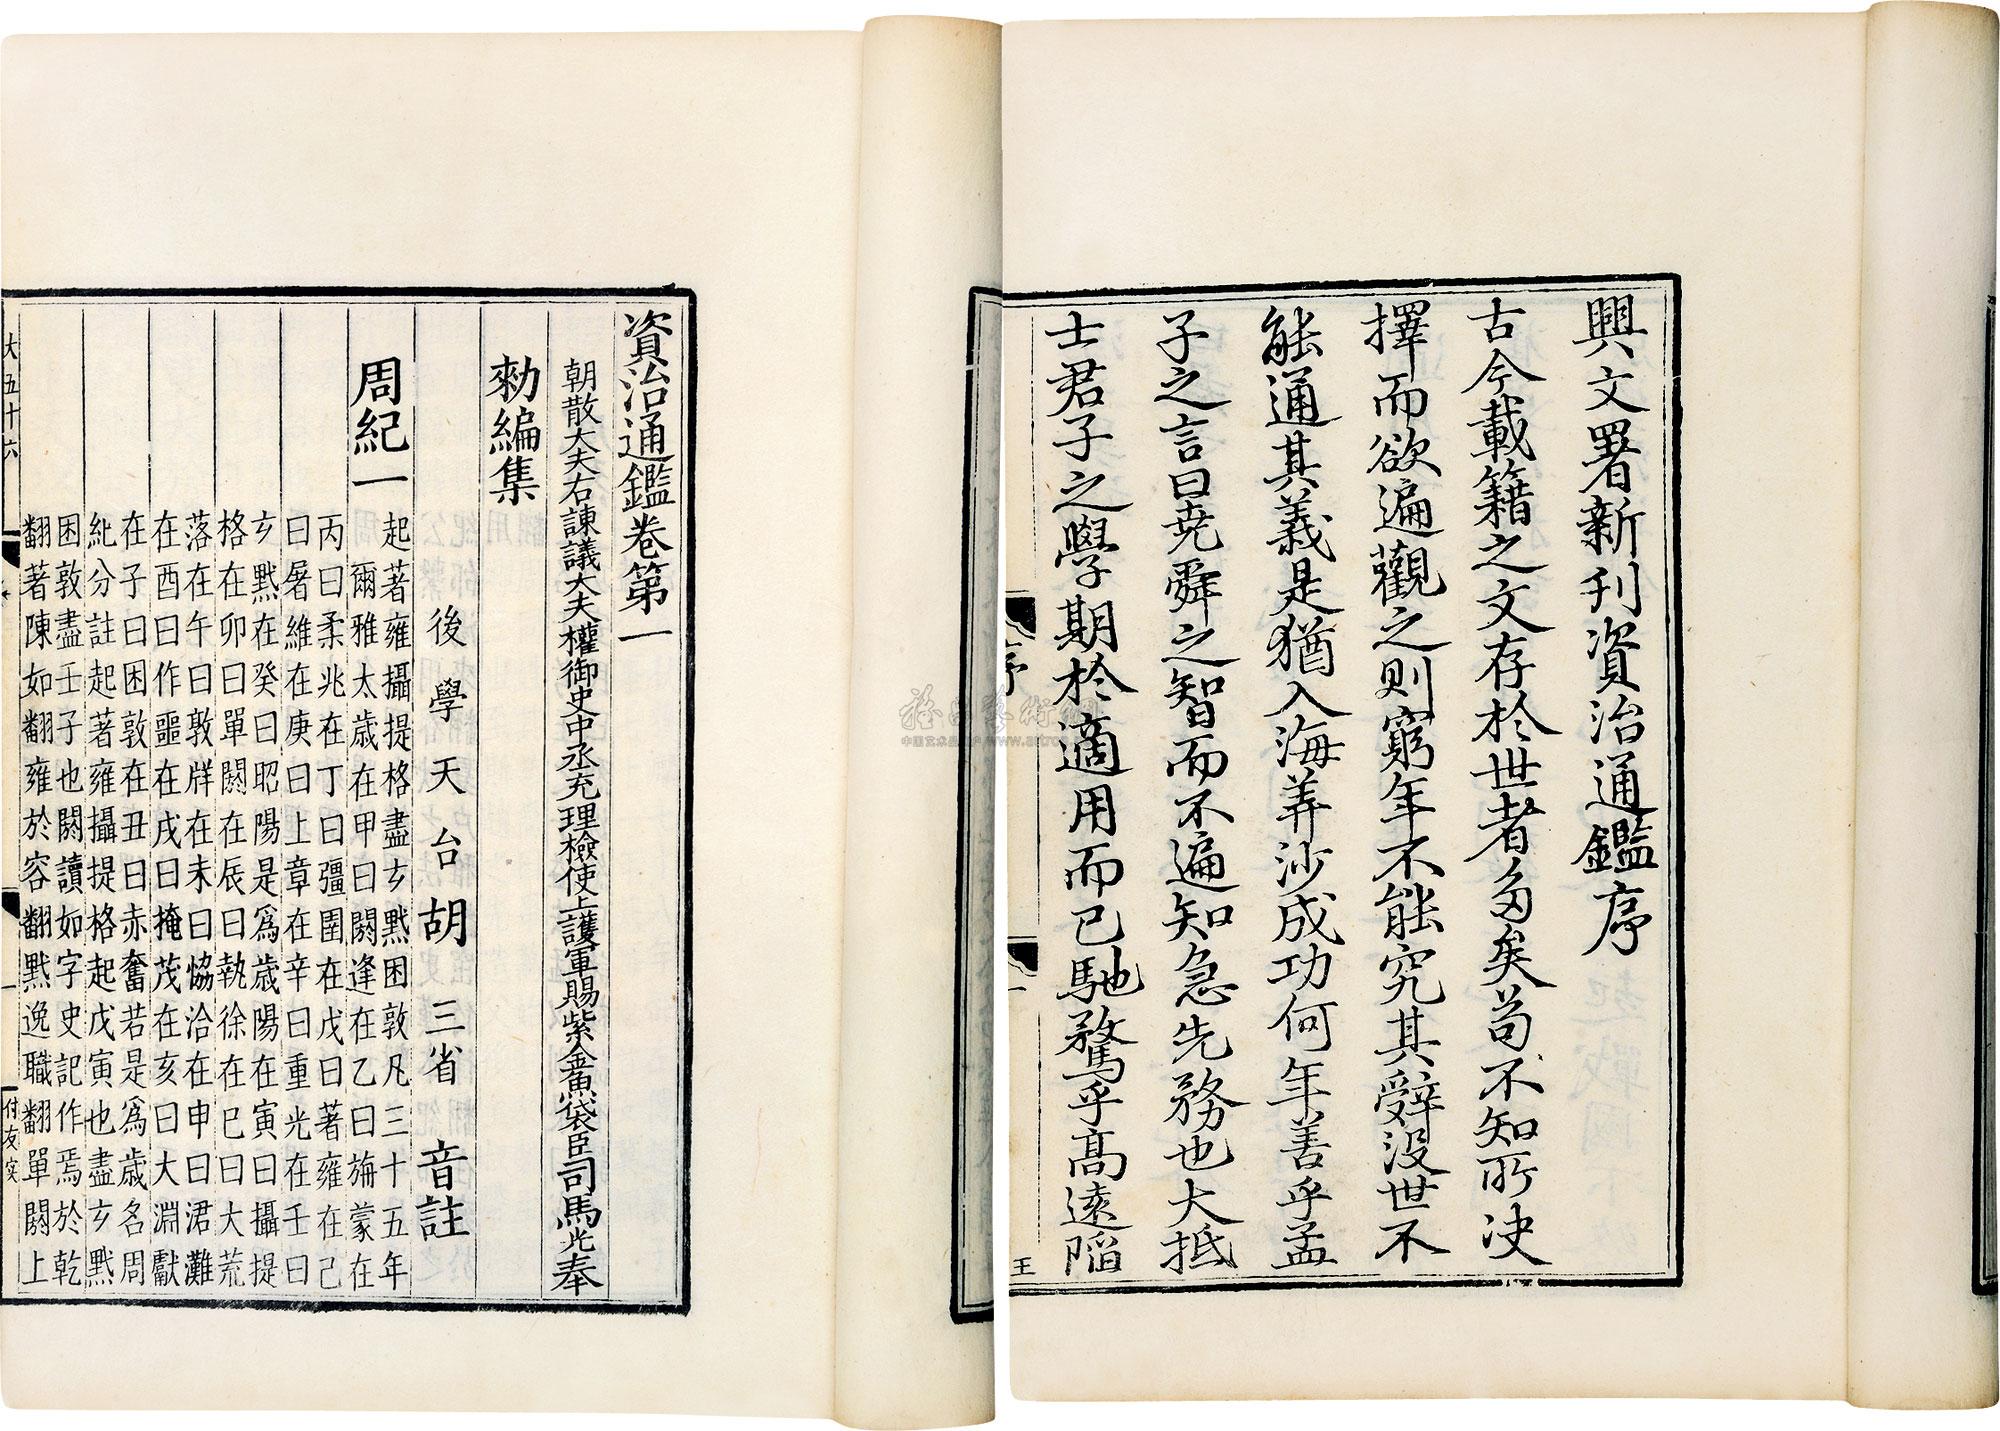 興文署新刊資治通鑑序
古今載籍之文存於世者多矣苟不知所決
擇而欲遍觀之則窮年不能究其辭没世不
能通其義是猶入海筭沙成功何年善乎孟
子之言曰堯舜之智而不遍知急先務也大抵
士君子之學期於適用而已馳騖乎髙遠陷
序
一
王
資治通鑑卷第一
朝散大夫右諫議大夫權御史中丞充理檢使上護軍賜紫金魚袋臣司馬光奉
勑編集
後學天台胡三省音註
周紀一
起著雍攝提格盡玄黓困敦凡三十五年
爾雅太歲在甲曰閼逢在乙曰旃蒙在
丙曰柔兆在丁曰彊圉在戊曰著雍在己
曰屠維在庚曰上章在辛曰重光在壬曰
玄黓在癸曰昭陽是爲歲陽在寅曰攝提
格在卯曰單閼在辰曰執徐在巳曰大荒
落在午曰敦牂在未曰協洽在申曰涒灘
在酉曰作噩在戌曰掩茂在亥曰大淵獻
在子曰困敦在丑曰赤奮若是爲歲名周
紀分註起著雍攝提格起戊寅也盡玄黓
困敦盡壬子也閼讀如字史記作焉於乾
翻著陳如翻雍於容翻黓逸職翻單閼上
大五十六
一
付友実